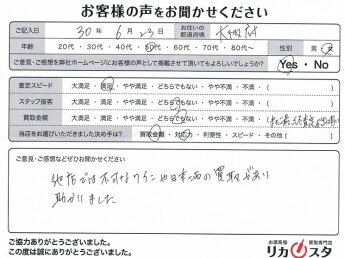 お客様の声をお聞かせください
ご記入日 30年 6月 23日 お住いの都道府県 大阪府
年齢 20代・30代・40代・50代・60代・70代・80代～ 性別 男・女
ご意見・ご感想を弊社ホームページにお客様の声として掲載させて頂いてもよろしいでしょうか? Yes・No
査定スピード 大満足・満足・どちらでもない・やや不満・不満・( )
スタッフ接客 大満足・満足・どちらでもない・やや不満・不満・( )
買取金額 大満足・満足・どちらでもない・やや不満・不満・(
当店をお選びいただきました決め手は? 買取金額・対応・利便性・スピード・その他( )
ご意見・ご感想などぜひお聞かせください
他店では不可なワインや日本酒の買取があり
助かりました
ご協力ありがとうございました。
この度は誠にありがとうございました。
お酒高価買取専門店
リカスタ